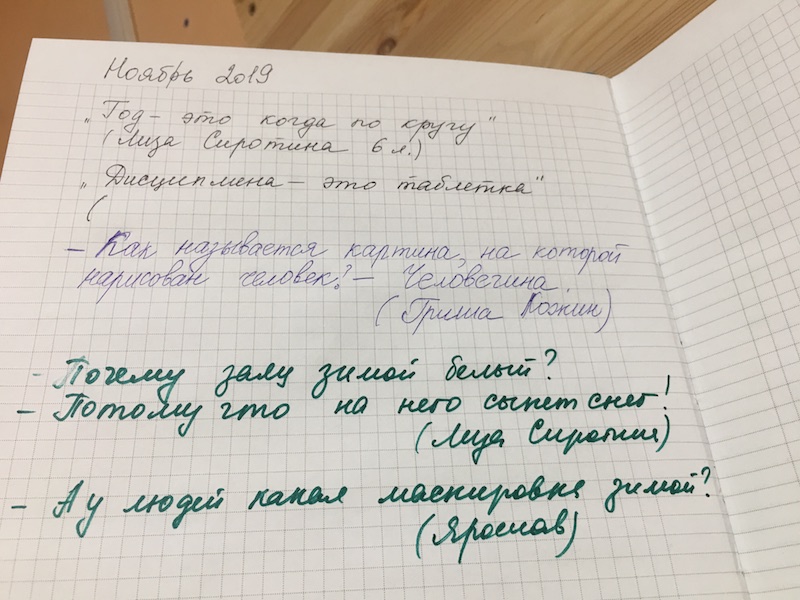 Ноябрь 2019
„Год – это когда по кругу"
(Лиза Сиротина 6 л.)
„Дисциплена – это таблетка"
(
– Как называется картина, на которой
нарисован человек? – Человечина.
(Гриша Кожин)
– Почему заяц зимой белый?
– Потому что на него сыпет снег!
(Лиза Сиротина)
– А у людей какая маскировка зимой?
(Ярослав)